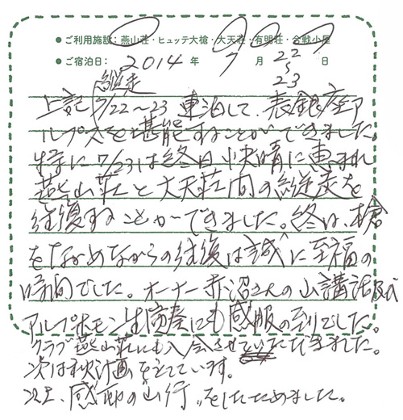 ●ご利用施設：燕山荘・ヒュッテ大槍・大天荘・有明荘・合戦小屋
●ご宿泊日： 2014 年 7 月 22〜23 日
縦走
上記7/22〜23 連泊して、表銀座ア
ルプスを堪能することができました。
特に7/23は終日快晴に恵まれ
燕山荘と大天荘間の縦走を
往復することができました。終日、槍
をながめながらの往復は誠に至福の
時間でした。オーナー赤沼さんの山講話及び
アルプホルン生演奏にも感服の到りでした。
クラブ燕山荘にも入会させていただきました。
次は秋計画を立てています。
以上、感動の山行、をしたためました。